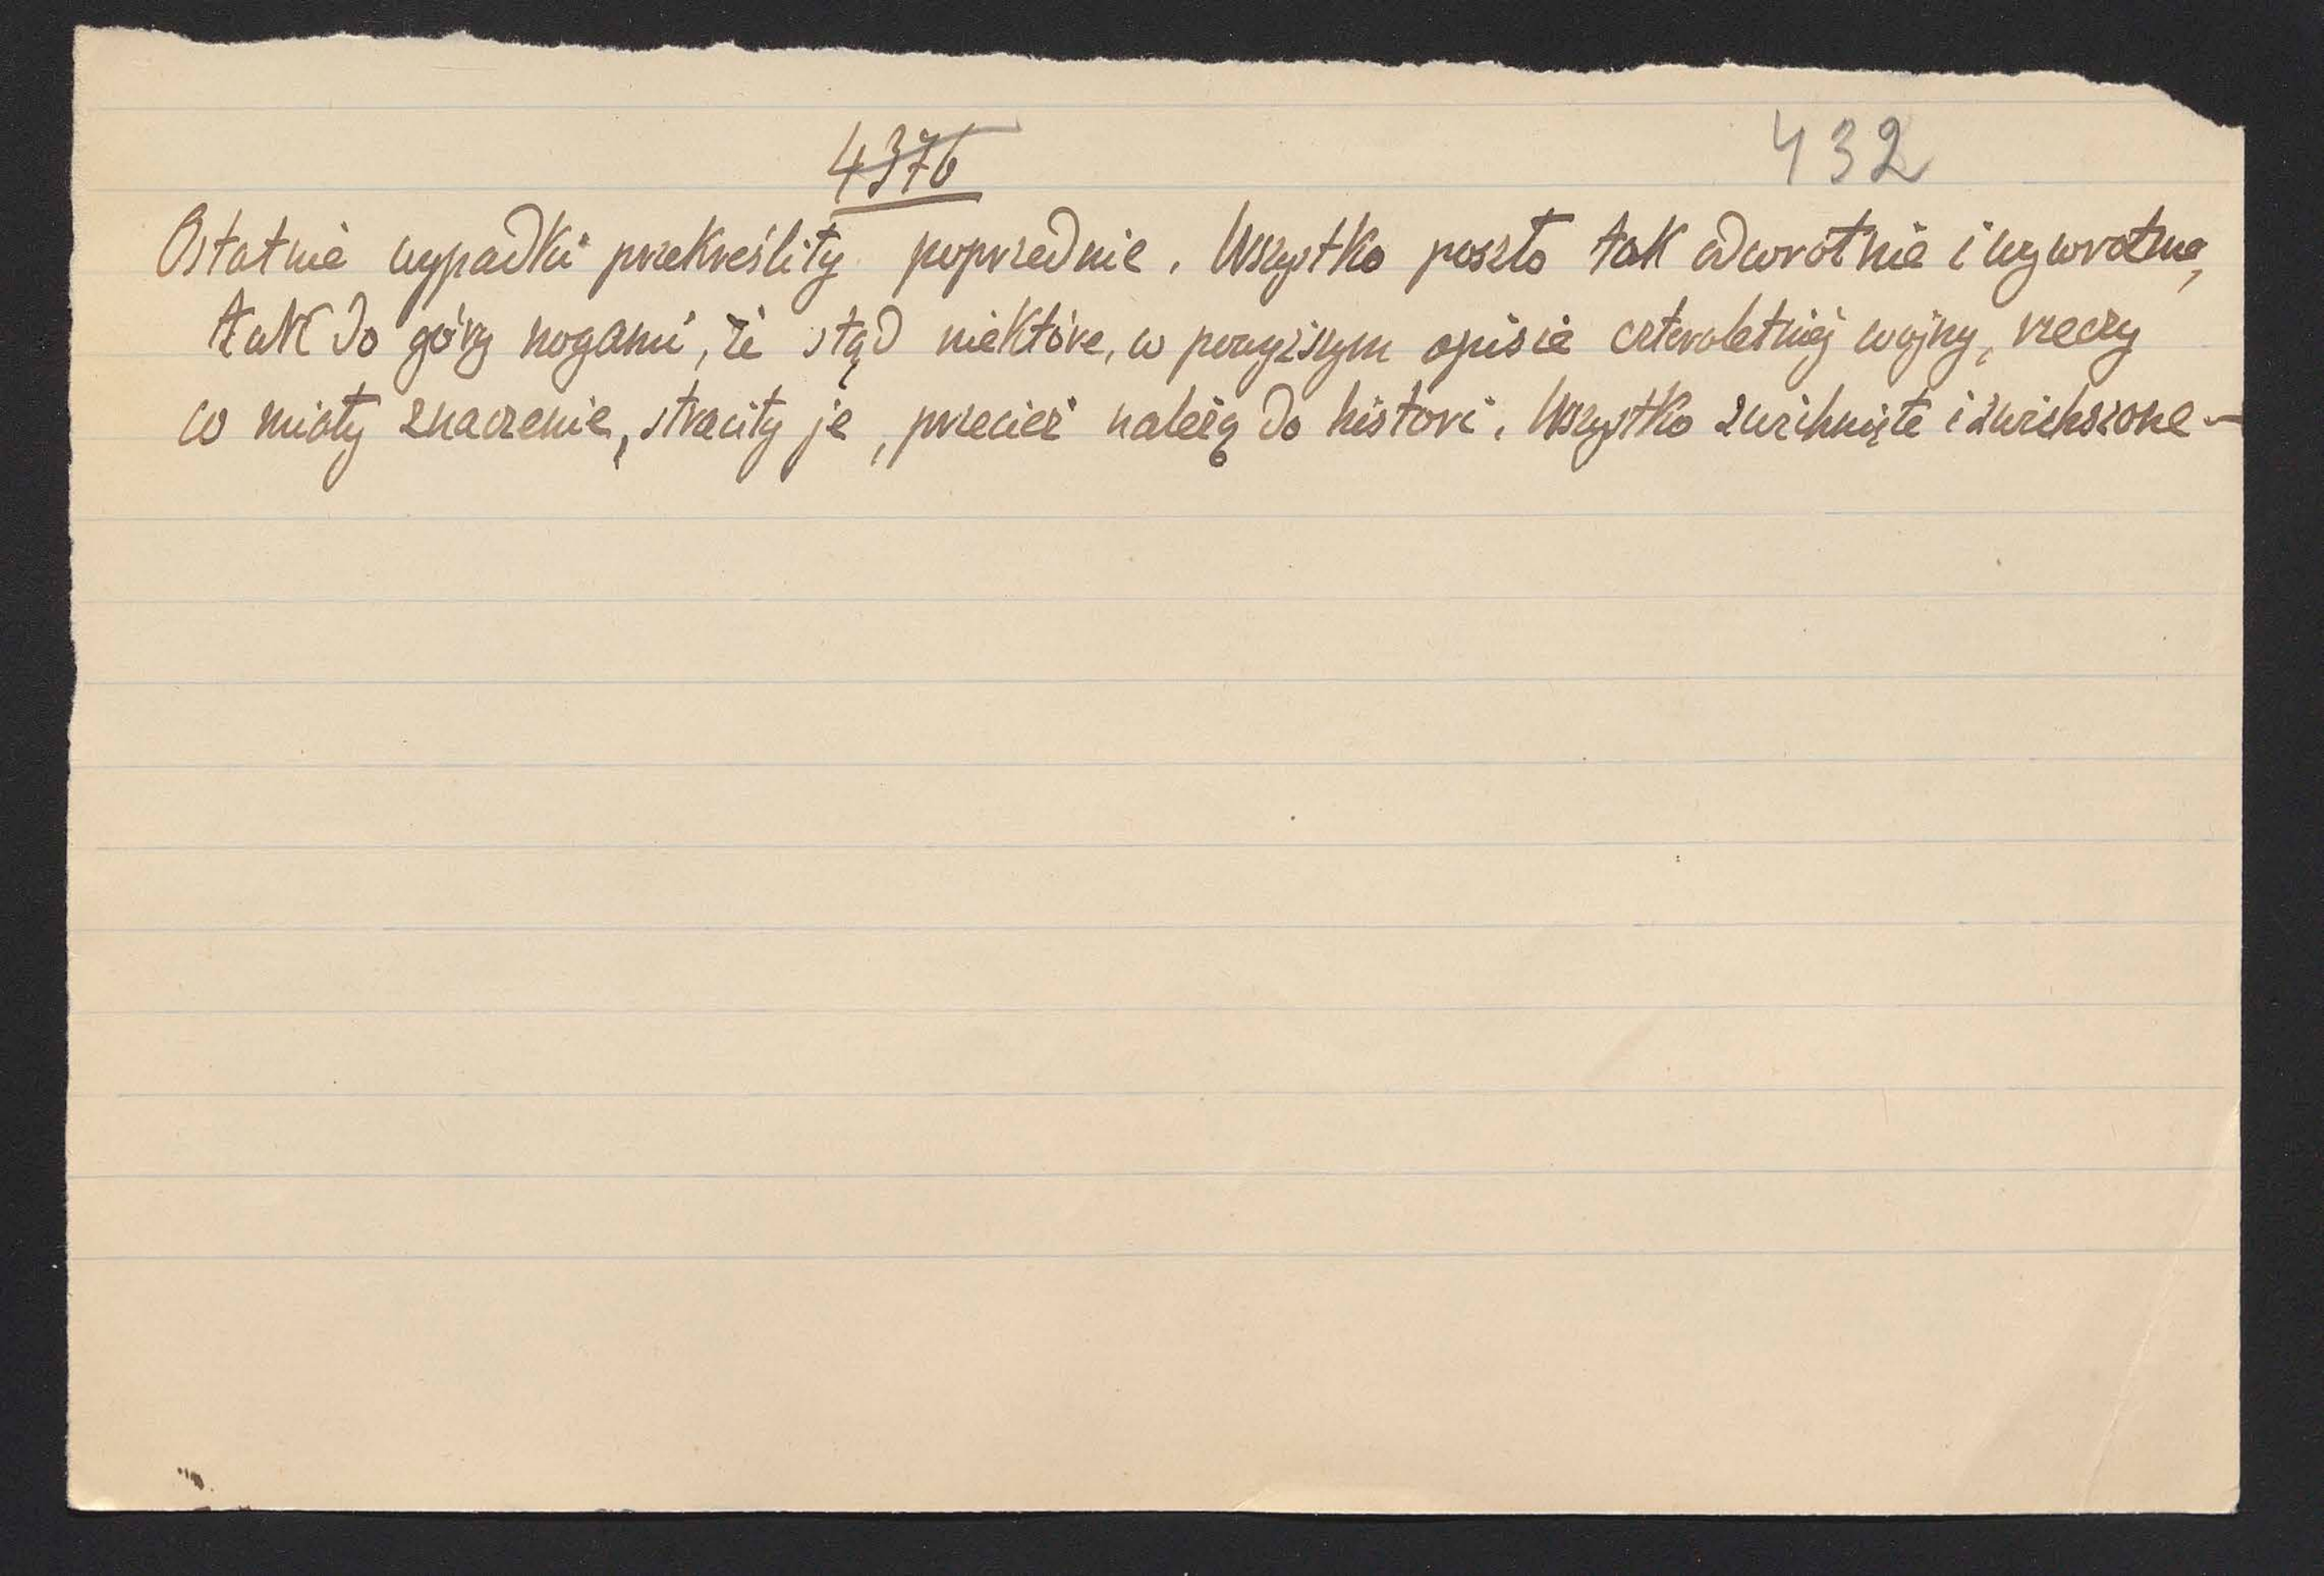 4376
432
Ostatnie wypadki przekreśliły poprzednie. Wszystko poszło tak odwrotnie i wywrotnie,
tak do góry nogami, że stąd niektóre, w powyższym opisie czteroletniej wojny, rzeczy
co miały znaczenie, straciły je, przecież należą do histori. Wszystko zwichnięte i zwichszone –